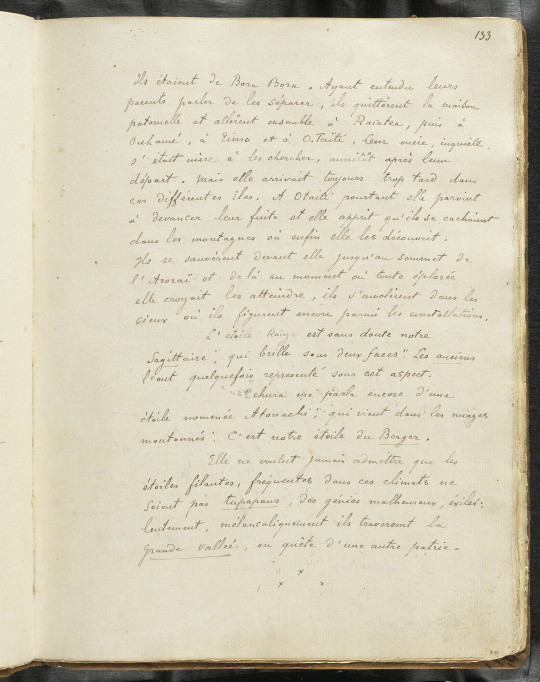 133
Ils étaient de Bora Bora. Ayant entendu leurs
parents parler de les séparer, ils quittèrent la maison
paternelle et allèrent ensemble à Raiatea, puis à
Ouhamé, à Eimo et à O.Taïti. Leur mère, inquiète,
s'était mise à les chercher, aussitôt après leur
départ. Mais elle arrivait toujours trop tard dans
ces différentes Iles. A Otaïti pourtant elle parvint
à devancer leur fuite et elle apprit qu'ils se cachaient
dans les montagnes où enfin elle les découvrit.
Ils se sauvèrent devant elle jusqu'au sommet de
l'Arorai et de là au moment où toute éplorée
elle croyait les atteindre, ils s'envolèrent dans les
cieux où ils figurent encore parmi les constellations.
L'étoile est sans doute notre
Sagittaire", qui brille sous deux faces". Les anciens
l'ont quelquefois représenté sous cet aspect.
Tehura me parla encore d'une
étoile nommée Atouachi, "qui vient dans les nuages
moutonnés". C'est notre étoile du Berger.
Elle ne voulut jamais admettre que les
étoiles filantes, fréquentes dans ces climats ne
soient pas tupapaus, des génies malheureux, exilés:
lentement, mélancoliquement ils traversent la
grande vallée, en quête d'une autre patrie.
x
x x